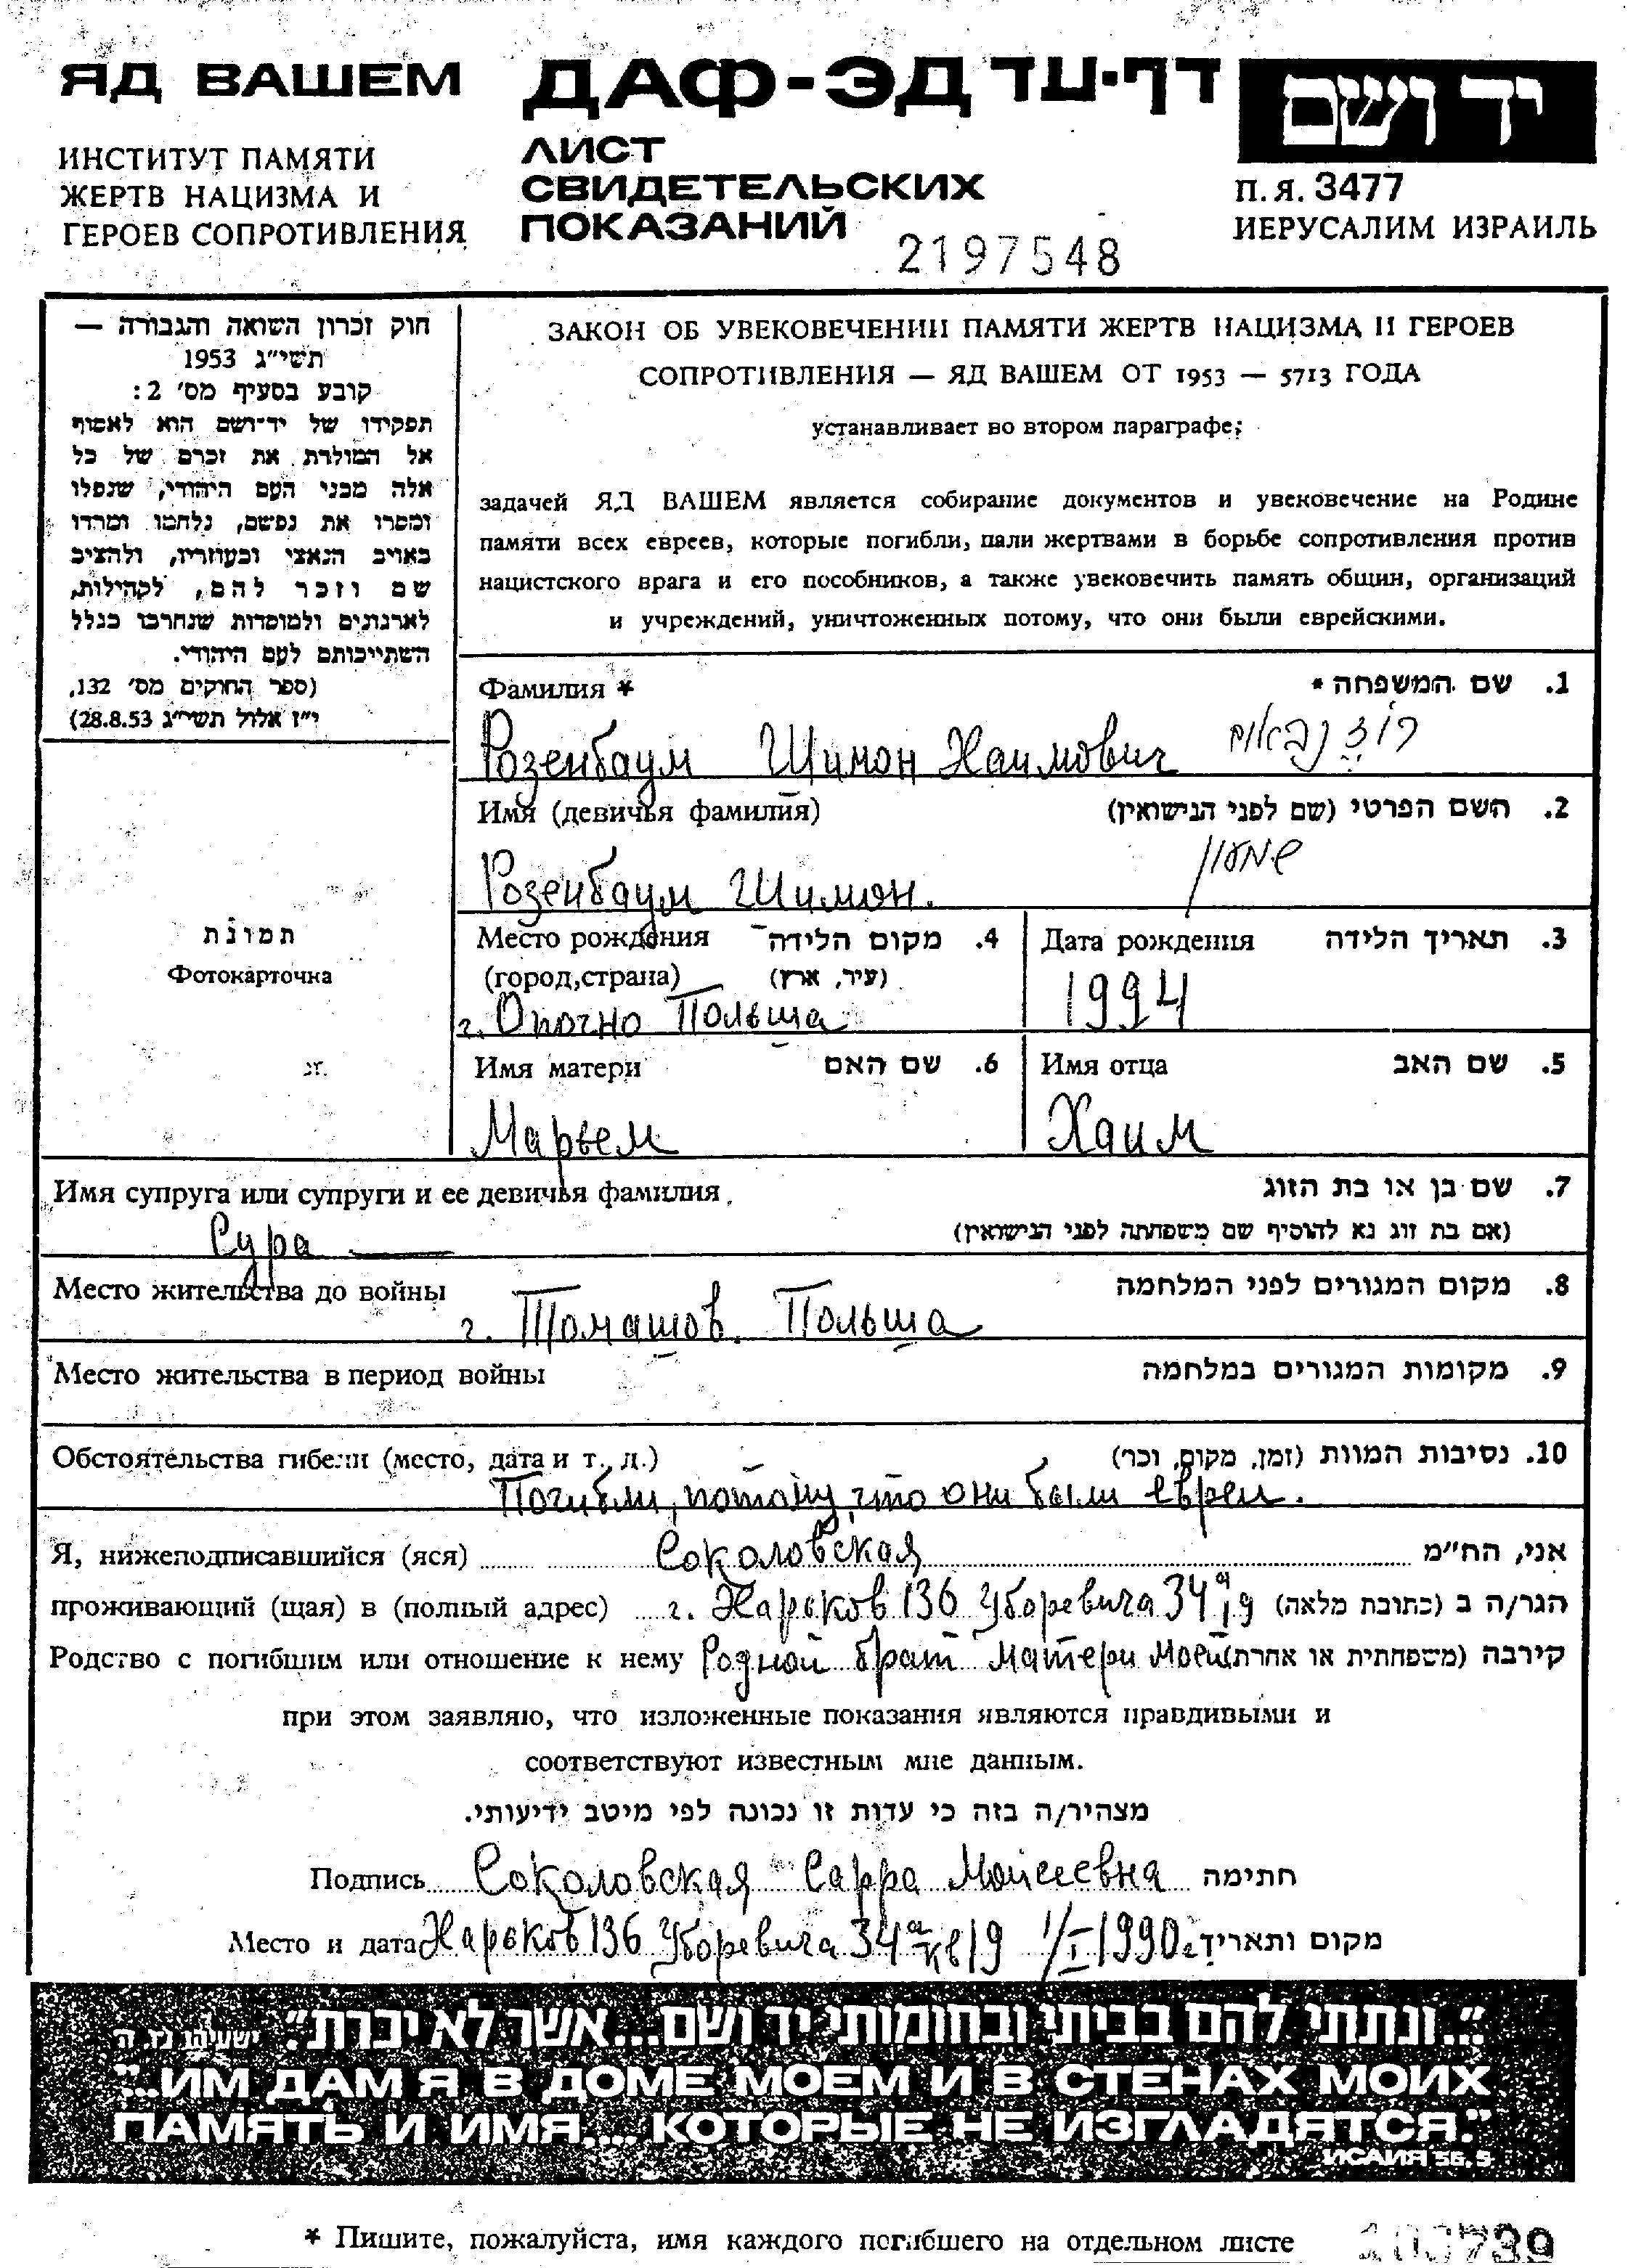 ЯД ВАШЕМ
ИНСТИТУТ ПАМЯТИ
ЖЕРТВ НАЦИЗМА И
ГЕРОЕВ СОПРОТИВЛЕНИЯ
ДАФ-ЭД דף-עד
ЛИСТ
СВИДЕТЕЛЬСКИХ
ПОКАЗАНИЙ
2197548
יד ושם
П.Я. 3477
ИЕРУСАЛИМ ИЗРАИЛЬ
חוק זכרון השואה והגבורה —
תשי״ג 1953
קובע בסעיף מס׳ 2:
תפקידו של יד־ושם הוא לאסוף
אל המולדת את זכרם של כל
אלה מבני העם היהודי, שנפלו
ומסרו את נפשם, נלחמו ומרדו
באויב הנאצי ובעוזריו, ולהציב
שם וזכר להם, לקהילות,
לארגונים ולמוסדות שנחרבו בגלל
השתייכותם לעם היהודי.
(ספר החוקים מס׳ 132,
י״ז אלול תשי״ג 28.8.53)
ЗАКОН ОБ УВЕКОВЕЧЕНИИ ПАМЯТИ ЖЕРТВ НАЦИЗМА И ГЕРОЕВ
СОПРОТИВЛЕНИЯ — ЯД ВАШЕМ ОТ 1953 — 5713 ГОДА
устанавливает во втором параграфе;
задачей ЯД ВАШЕМ является собирание документов и увековечение на Родине
памяти всех евреев, которые погибли, пали жертвами в борьбе сопротивления против
нацистского врага и его пособников, а также увековечить память общин, организаций
и учреждений, уничтоженных потому, что они были еврейскими.
Фамилия * 1. שם המשפחה *
Розенбаум Шимон Хаимович רוזנבאום
Имя (девичья фамилия) 2. השם הפרטי (שם לפני הנישואין)
Розенбаум Шимон. שמעון
תמונת
Фотокарточка
Место рождения 4. מקום הלידה
(город,страна) (עיר, ארץ)
г. Опочно Польша
Дата рождения 3. תאריך הלידה
1994
Имя матери 6. שם האם
Марьем
Имя отца 5. שם האב
Хаим
Имя супруга или супруги и ее девичья фамилия 7. שם בן או בת הזוג
(אם בת זוג נא להוסיף שם משפחתה לפני הנישואין)
Сура —
Место жительства до войны 8. מקום המגורים לפני המלחמה
г. Томашов. Польша
Место жительства в период войны 9. מקומות המגורים במלחמה
Обстоятельства гибели (место, дата и т. д.) 10. נסיבות המוות (זמן, מקום, וכר)
Погибли, потому, что они были евреи.
Я, нижеподписавшийся (яся) Соколовская אני, הח״מ
проживающий (щая) в (полный адрес) г. Харьков 136 Уборевича 34а, 19 הגר/ה ב (כתובת מלאה)
Родство с погибшим или отношение к нему Родной брат матери моей קירבה (משפחתית או אחרת)
при этом заявляю, что изложенные показания являются правдивыми и
соответствуют известным мне данным.
מצהיר/ה בזה כי עדות זו נכונה לפי מיטב ידיעותי.
Подпись Соколовская Сарра Моисеевна חתימה
Место и дата Харьков 136 Уборевича 34а кв 19 1/I-1990г מקום ותאריך
"...ונתתי להם בביתי ובחומותי יד ושם...אשר לא יכרת". ישעיהו נו, ה
"...ИМ ДАМ Я В ДОМЕ МОЕМ И В СТЕНАХ МОИХ
ПАМЯТЬ И ИМЯ.... КОТОРЫЕ НЕ ИЗГЛАДЯТСЯ."
ИСАИЯ 56, 5
* Пишите, пожалуйста, имя каждого погибшего на отдельном листе